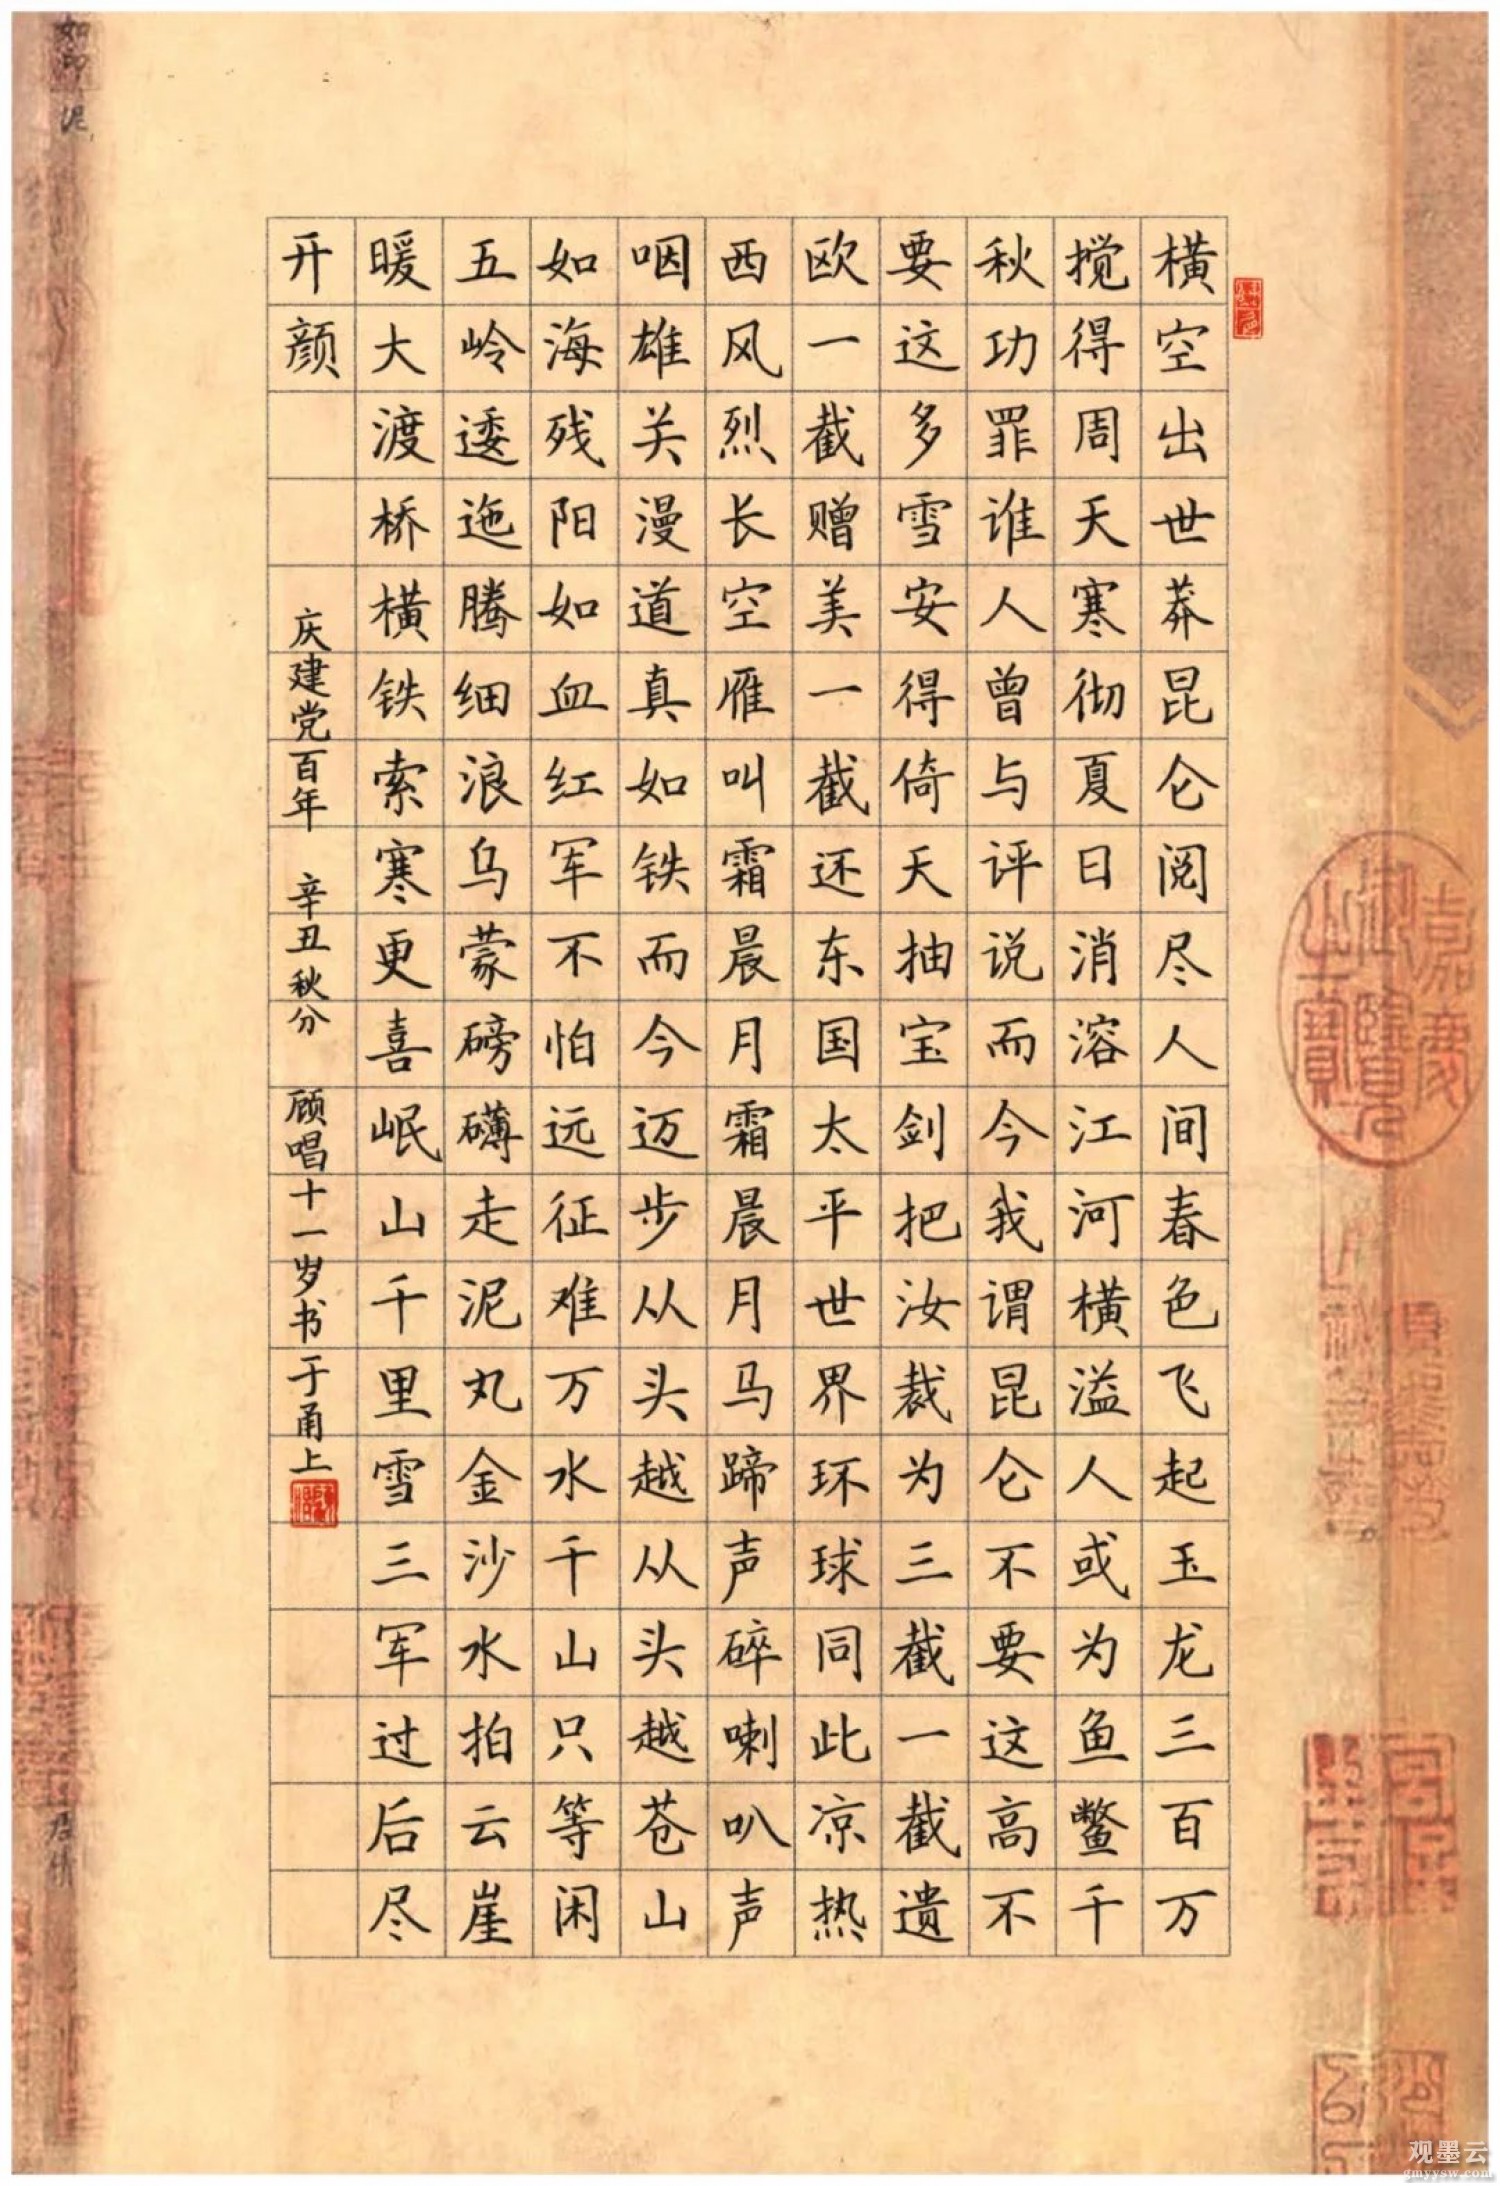 横空出世莽昆仑阅尽人间春色飞起玉龙三百万
搅得周天寒彻夏日消溶江河横溢人或为鱼鳖千
秋功罪谁人曾与评说而今我谓昆仑不要这高不
要这多雪安得倚天抽宝剑把汝裁为三截一截遗
欧一截赠美一截还东国太平世界环球同此凉热
西风烈长空雁叫霜晨月霜晨月马蹄声碎喇叭声
咽雄关漫道真如铁而今迈步从头越从头越苍山
如海残阳如血红军不怕远征难万水千山只等闲
五岭逶迤腾细浪乌蒙磅礴走泥丸金沙水拍云崖
暖大渡桥横铁索寒更喜岷山千里雪三军过后尽
开颜
庆建党百年 辛丑秋分 顾唱十一岁书于甬上
嘉庆御览之宝
观墨云
gmyysw.com